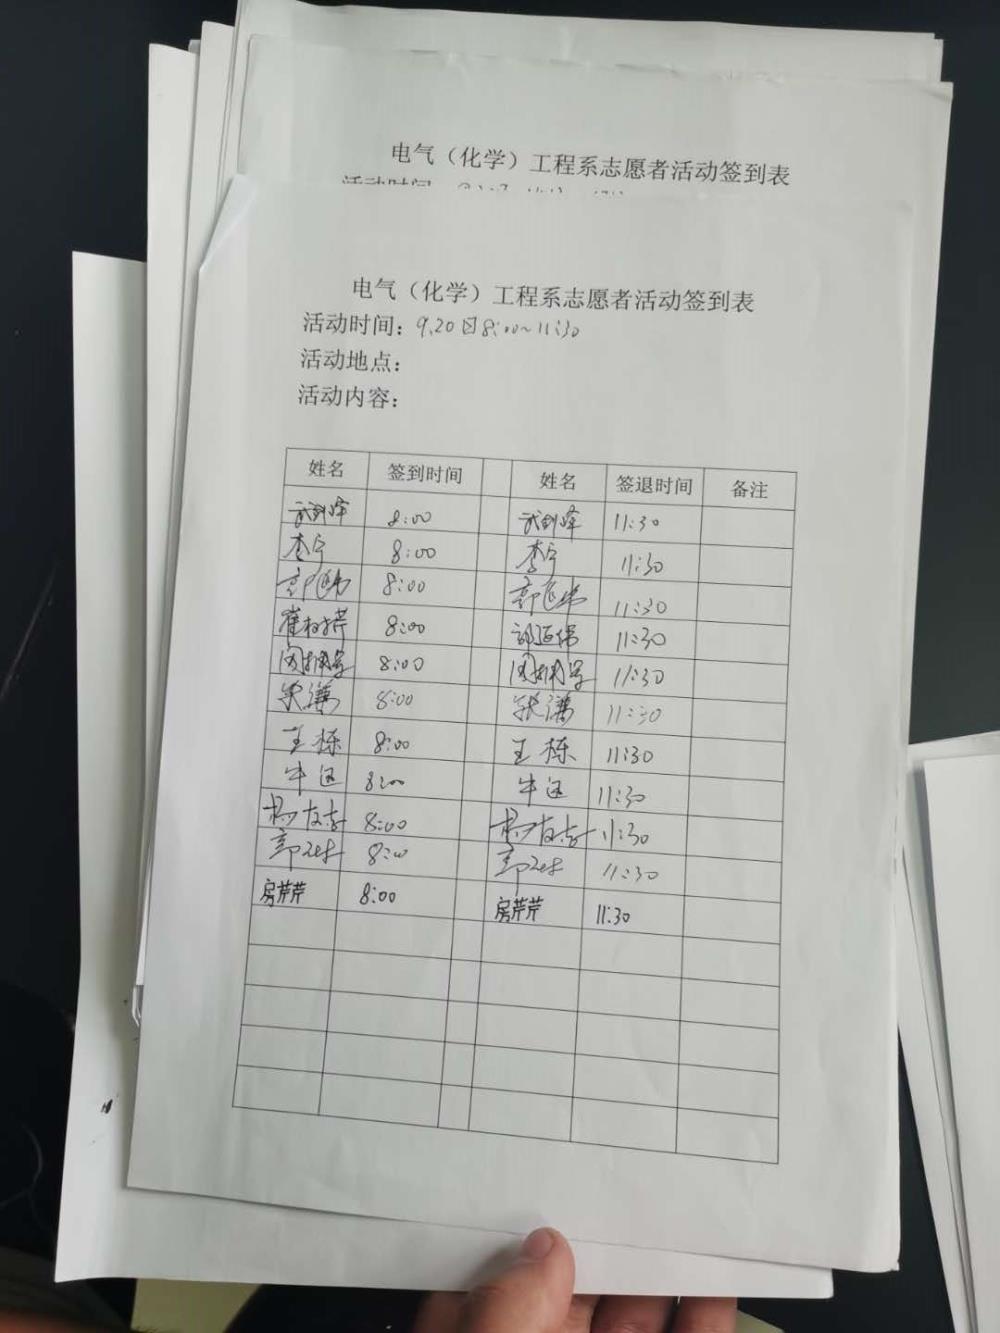 电气（化学）工程系志愿者活动签到表
活动时间：
电气（化学）工程系志愿者活动签到表
活动时间：9.20日8:00~11:30
活动地点：
活动内容：
姓名 签到时间 姓名 签退时间 备注
8:00 11:30
李宁 8:00 李宁 11:30
郭延伟 8:00 郭延伟 11:30
8:00 11:30
8:00 11:30
张谦 8:00 张谦 11:30
王栋 8:00 王栋 11:30
牛迅 8:00 牛迅 11:30
8:00 11:30
8:00 11:30
房芹芹 8:00 房芹芹 11:30